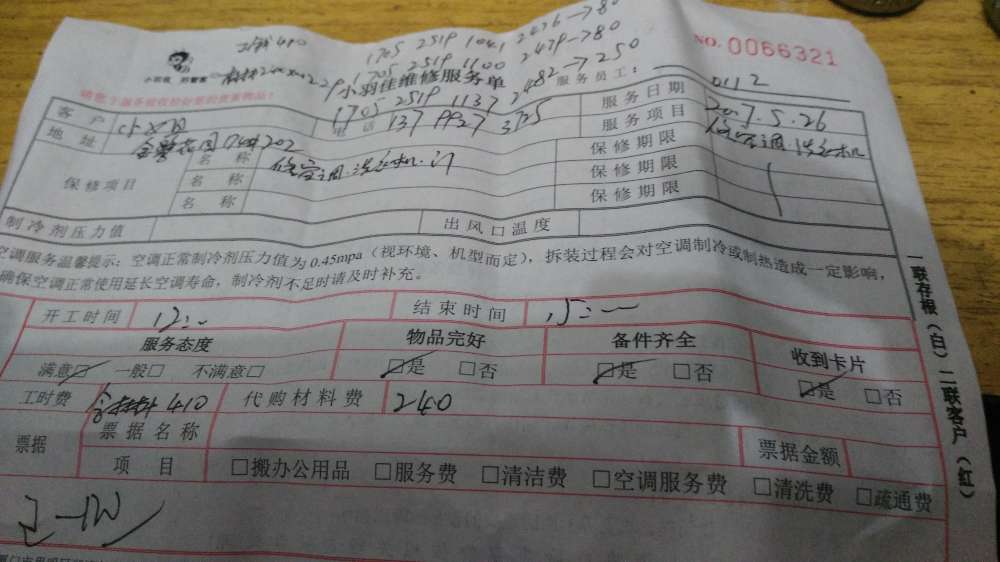 工钱410
1705 2519 1041 2476→780
1705 2519 1100 2479→780
1705 2519 1137 2482→250
NO.0066321
小羽佳 好管家
小羽佳维修服务单
服务员工: 0112
客户 电话 137 9927 3725 服务日期 2017.5.26
地址 7#202 服务项目 修空调.洗衣机
保修项目 名称 修空调.洗衣机.门 保修期限
名称 保修期限
名称 保修期限
制冷剂压力值 出风口温度
空调服务温馨提示:空调正常制冷剂压力值为0.45mpa(视环境、机型而定),拆装过程会对空调制冷或制热造成一定影响,
确保空调正常使用延长空调寿命,制冷剂不足时请及时补充。
开工时间 12:- 结束时间 15:-
服务态度 物品完好 备件齐全 收到卡片
满意□ 一般□ 不满意□ □是 □否 □是 □否 □是 □否
工时费 含材料410 代购材料费 240
票据 票据名称 票据金额
项目 □搬办公用品 □服务费 □清洁费 □空调服务费 □清洗费 □疏通费
一联存根(白) 二联客户(红)